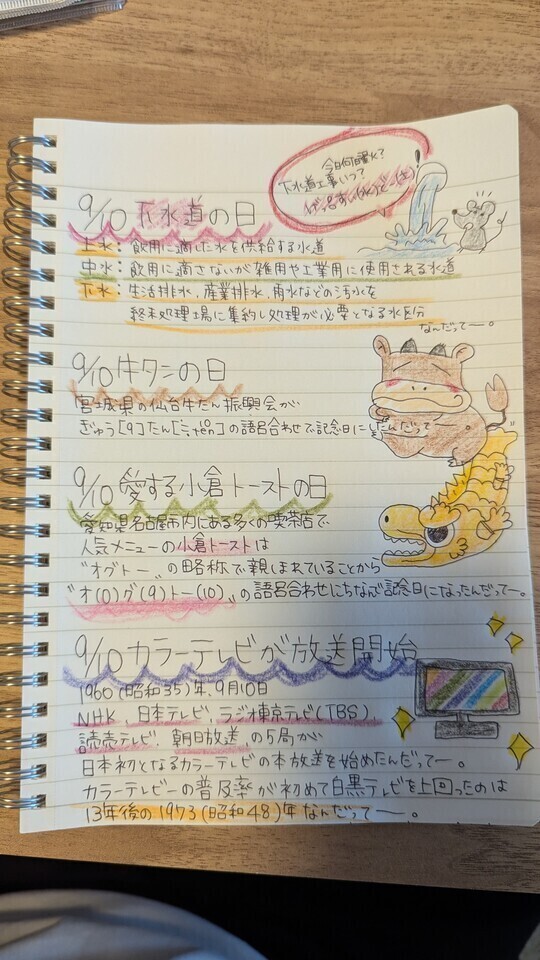 今日何曜火?
下水道工事いつ?
9/10 下水道の日
上水：飲用に適した水を供給する水道
中水：飲用に適さないが雑用や工業用に使用される水道
下水：生活排水、産業排水、雨水などの汚水を
終末処理場に集約し処理が必要となる水区分
なんだってー。
9/10 牛タンの日
宮城県の仙台牛たん振興会が
ぎゅう[9]たん[ten]の語呂合わせで記念日にしたんだってー。
9/10 愛する小倉トーストの日
愛知県名古屋市内にある多くの喫茶店で
人気メニューの小倉トーストは
"オグトー"の略称で親しまれていることから
"オ(0)グ(9)トー(10)"の語呂合わせにちなんで記念日になったんだってー。
9/10 カラーテレビが放送開始
1960(昭和35)年、9月10日
NHK、日本テレビ、ラジオ東京テレビ(TBS)
読売テレビ、朝日放送、の5局が
日本初となるカラーテレビの本放送を始めたんだってー。
カラーテレビーの普及率が初めて白黒テレビを上回ったのは
13年後の1973(昭和48)年なんだってー。